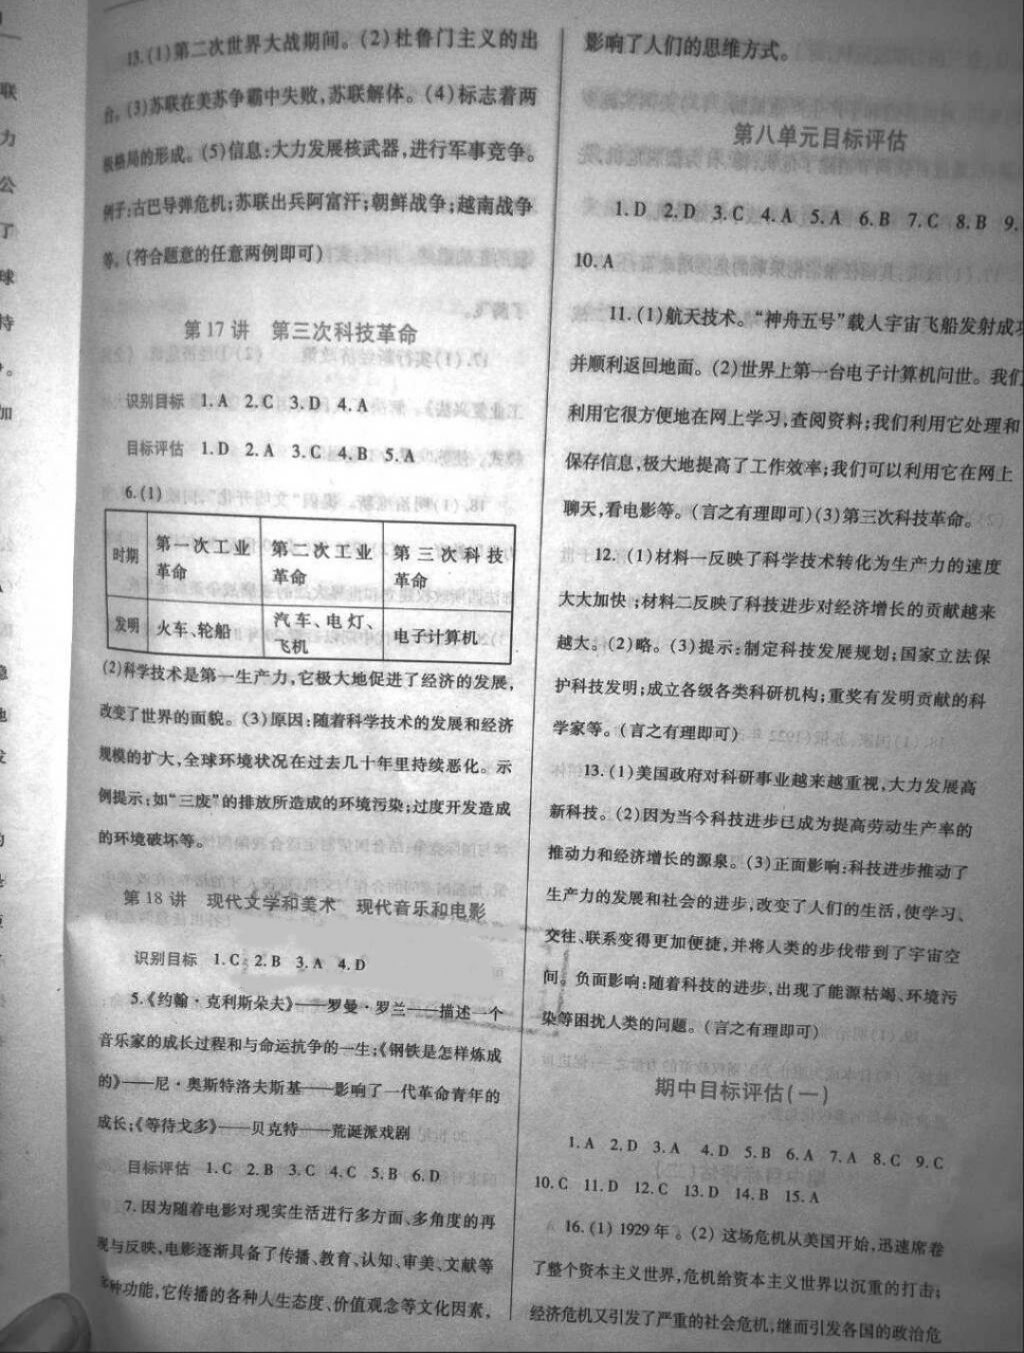 13.(1)第二次世界大战期间。(2)杜鲁门主义的出
台。(3)苏联在美苏争霸中失败,苏联解体。(4)标志着两
极格局的形成。(5)信息:大力发展核武器,进行军事竞争。
例子:古巴导弹危机;苏联出兵阿富汗;朝鲜战争;越南战争
等。(符合题意的任意两例即可)
第17讲 第三次科技革命
识别目标 1.A 2.C 3.D 4.A
目标评估 1.D 2.A 3.C 4.B 5.A
6.(1)
时期 第一次工业革命 第二次工业革命 第三次科技革命
发明 火车、轮船 汽车、电灯、飞机 电子计算机
(2)科学技术是第一生产力,它极大地促进了经济的发展,
改变了世界的面貌。(3)原因:随着科学技术的发展和经济
规模的扩大,全球环境状况在过去几十年里持续恶化。示
例提示:如“三废”的排放所造成的环境污染;过度开发造成
的环境破坏等。
第18讲 现代文学和美术 现代音乐和电影
识别目标 1.C 2.B 3.A 4.D
5.《约翰·克利斯朵夫》——罗曼·罗兰——描述一个
音乐家的成长过程和与命运抗争的一生;《钢铁是怎样炼成
的》——尼·奥斯特洛夫斯基——影响了一代革命青年的
成长;《等待戈多》——贝克特——荒诞派戏剧
目标评估 1.C 2.B 3.C 4.C 5.B 6.D
7.因为随着电影对现实生活进行多方面、多角度的再
现与反映,电影逐渐具备了传播、教育、认知、审美、文献等
多种功能,它传播的各种人生态度、价值观念等文化因素,
影响了人们的思维方式。
第八单元目标评估
1.D 2.D 3.C 4.A 5.A 6.B 7.C 8.B 9.
10.A
11.(1)航天技术。“神舟五号”载人宇宙飞船发射成功
并顺利返回地面。(2)世界上第一台电子计算机问世。我们
利用它很方便地在网上学习,查阅资料;我们利用它处理和
保存信息,极大地提高了工作效率;我们可以利用它在网上
聊天,看电影等。(言之有理即可)(3)第三次科技革命。
12.(1)材料一反映了科学技术转化为生产力的速度
大大加快;材料二反映了科技进步对经济增长的贡献越来
越大。(2)略。(3)提示:制定科技发展规划;国家立法保
护科技发明;成立各级各类科研机构;重奖有发明贡献的科
学家等。(言之有理即可)
13.(1)美国政府对科研事业越来越重视,大力发展高
新科技。(2)因为当今科技进步已成为提高劳动生产率的
推动力和经济增长的源泉。(3)正面影响:科技进步推动了
生产力的发展和社会的进步,改变了人们的生活,使学习、
交往、联系变得更加便捷,并将人类的步伐带到了宇宙空
间。负面影响:随着科技的进步,出现了能源枯竭、环境污
染等困扰人类的问题。(言之有理即可)
期中目标评估(一)
1.A 2.D 3.A 4.D 5.B 6.A 7.A 8.C 9.C
10.C 11.D 12.C 13.D 14.B 15.A
16.(1)1929年。(2)这场危机从美国开始,迅速席卷
了整个资本主义世界,危机给资本主义世界以沉重的打击;
经济危机又引发了严重的社会危机,继而引发各国的政治危